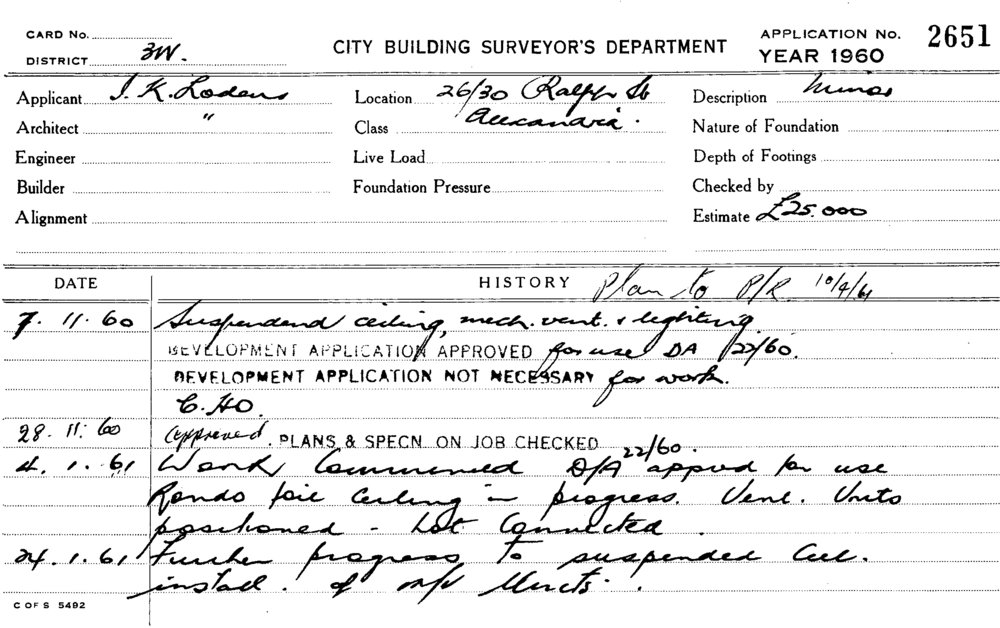 CARD No.
DISTRICT 3W.
CITY BUILDING SURVEYOR'S DEPARTMENT
APPLICATION No. 2651
YEAR 1960
Applicant J. K. Lodens Location 26/30 Ralph St Description Minor
Architect " Class Alexandria. Nature of Foundation
Engineer Live Load Depth of Footings
Builder Foundation Pressure Checked by
Alignment Estimate £25.000
DATE HISTORY Plan to P/R 10/4/61
7. 11. 60 Suspendend ceiling, mech. vent. & lighting.
DEVELOPMENT APPLICATION APPROVED for use DA 22/60.
DEVELOPMENT APPLICATION NOT NECESSARY for work.
C. HO.
28. 11. 60 Approved. PLANS & SPECN ON JOB CHECKED
4. 1. 61 Work Commenced D/A 22/60. approd for use
Rondo ceiling in progress. Vent. Units
positioned - not connected.
24. 1. 61 Further progress to suspended Ceil.
install. of m/v
C OF S 5492